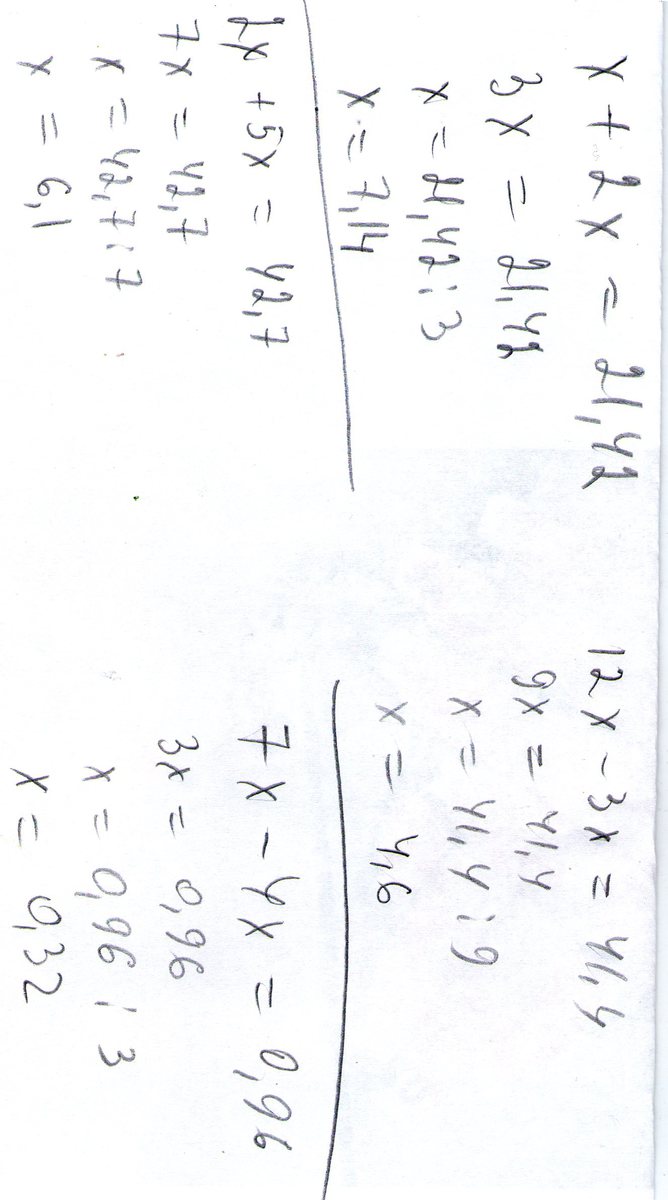 x + 2x = 21,42
3x = 21,42
x = 21,42 : 3
x = 7,14
2x + 5x = 42,7
7x = 42,7
x = 42,7 : 7
x = 6,1
12x - 3x = 41,4
9x = 41,4
x = 41,4 : 9
x = 4,6
7x - 4x = 0,96
3x = 0,96
x = 0,96 : 3
x = 0,32